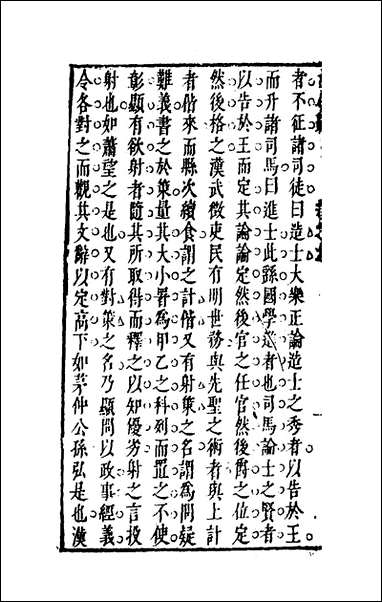 者不征諸司徒曰造士大樂正論造士之秀者以告於王
而升諸司馬曰進士此孫國學造者也司馬論士之賢者
以告於王而定其論論定然後官之任官然後爵之位定
然後格之漢武徵吏民有明世務與先聖之術者與上計
者偕來而縣次續食謂之計偕又有射策之名謂為問疑
難義書之於策量其大小署為甲乙之科列而置之不使
彰顯有欲射者隨其所取得而釋之以知優劣射之言投
射也如蕭望之是也又有對策之名乃顯問以政事經義
令各對之而觀其文辭以定高下如茅仲公孫弘是也漢